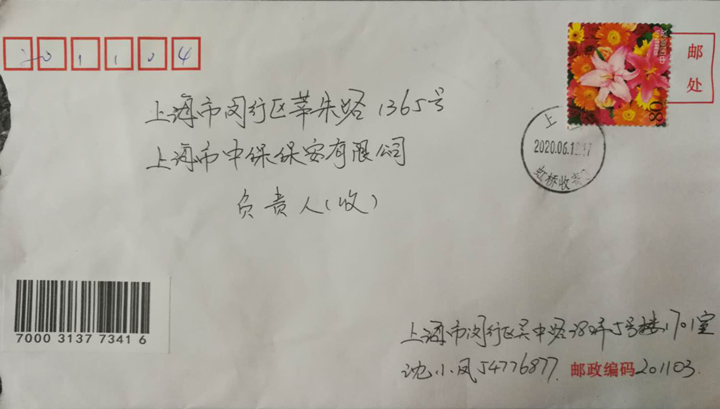 201104
邮
处
80
上海市闵行区莘朱路1365号
上海市中保保安有限公司
负责人(收)
2020.06.1
虹桥收
7000 3137 7341 6
上海市闵行区吴中路弄5号楼1701室
沈小凤54776877 邮政编码201103